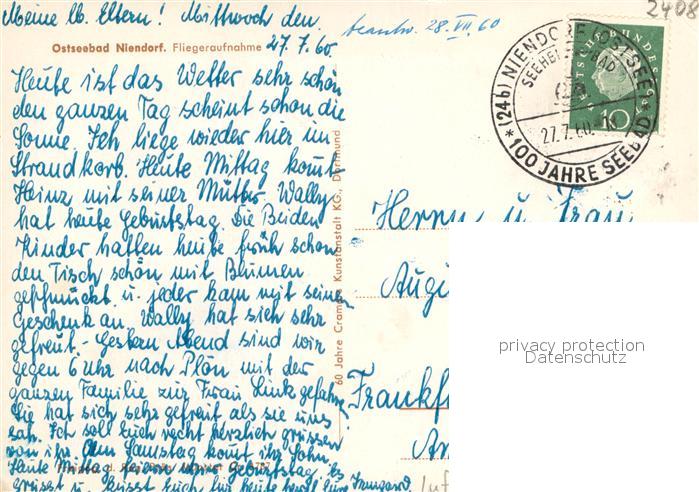 Meine lb. Eltern! Mittwoch den
27.7.60.
beantw. 28.VII.60
2408
Ostseebad Niendorf. Fliegeraufnahme
Heute ist das Wetter sehr schön
den ganzen Tag scheint schon die
Sonne. Ich liege wieder hier im
Strandkorb. Heute Mittag kommt
Heinz mit seiner Mutter. Wally
hat heute Geburtstag. Die Beiden
Kinder hatten heute früh schon
den Tisch schön mit Blumen
geschmückt u. jeder kam mit seinem
Geschenk an. Wally hat sich sehr
gefreut. - Gestern Abend sind wir
gegen 6 Uhr nach Plön mit der
ganzen Familie zur Frau Link gefahren
Sie hat sich sehr gefreut als sie uns
sah. Ich soll Euch recht herzlich grüssen
von ihr. Am Samstag kommt ihr Sohn.
Heute Mittag feiern wir Geburtstag. Es
grüsst u. küsst Euch für heute Irmgard.
60 Jahre Cramers Kunstanstalt KG., Dortmund
(24b) NIENDORF (OSTSEE)
SEEHEILBAD
27.7.60.
* 100 JAHRE SEEBAD
DEUTSCHE BUNDESPOST
10
Herrn u. Frau
Augu
Frankf
Am
privacy protection
Datenschutz